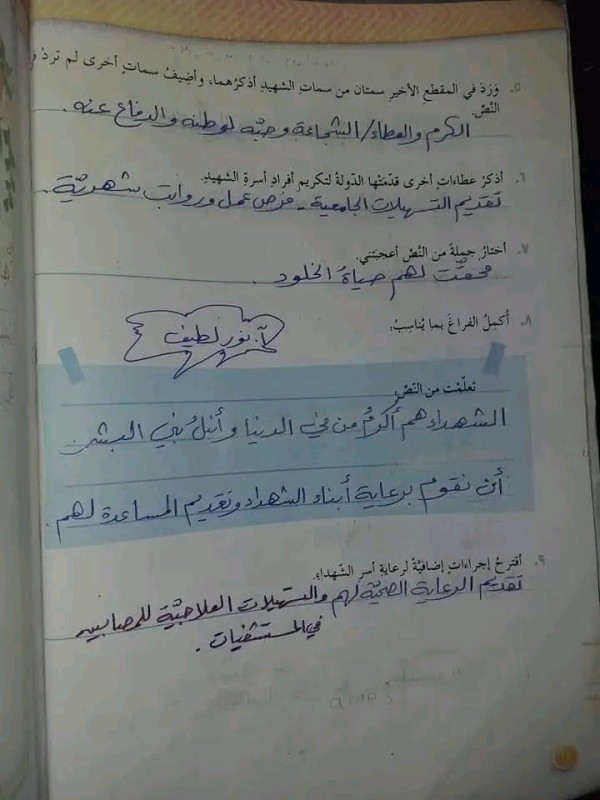 ٥. وَرَدَ في المقطعِ الأخيرِ سمتان من سماتِ الشهيدِ أذكرُهما، وأضيفُ سماتٍ أخرى لم تردْ في
النّصّ.
الكرم والعطاء/الشجاعة وحبّه لوطنه والدفاع عنه.
٦. أذكرُ عطاءاتٍ أخرى قدمَتْها الدّولةُ لتكريمِ أفرادِ أسرةِ الشهيدِ.
تقديم التسهيلات الجامعية - فرص عمل ورواتب شهريّة.
٧. أختارُ جملةً من النّصّ أعجبَتني.
حياةُ الخلود. لهم
٨. أُكملُ الفراغَ بما يُناسِبُ:
آ. نور لطيف
تعلّمْت من النّصّ
الشهداء هم أكرمُ من في الدنيا وأنبلُ بني البشر
أن نقوم برعاية أبناء الشهداء وتقديم المساعدة لهم.
٩. أقترحُ إجراءاتٍ إضافيّةً لرعايةِ أسرِ الشّهداءِ.
تقديم الرعاية الصحيّة لهم والتسهيلات العلاجيّة للمصابين
في المستشفيات.